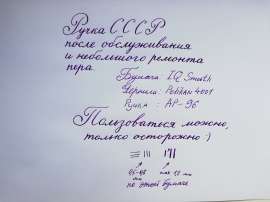 Ручка СССР
после обслуживания
и небольшого ремонта
пера
Бумага IQ Smooth
Чернила Pelikan 4001
Ручка : АР-96
Пользоваться можно,
только осторожно :)
по этой бумаге